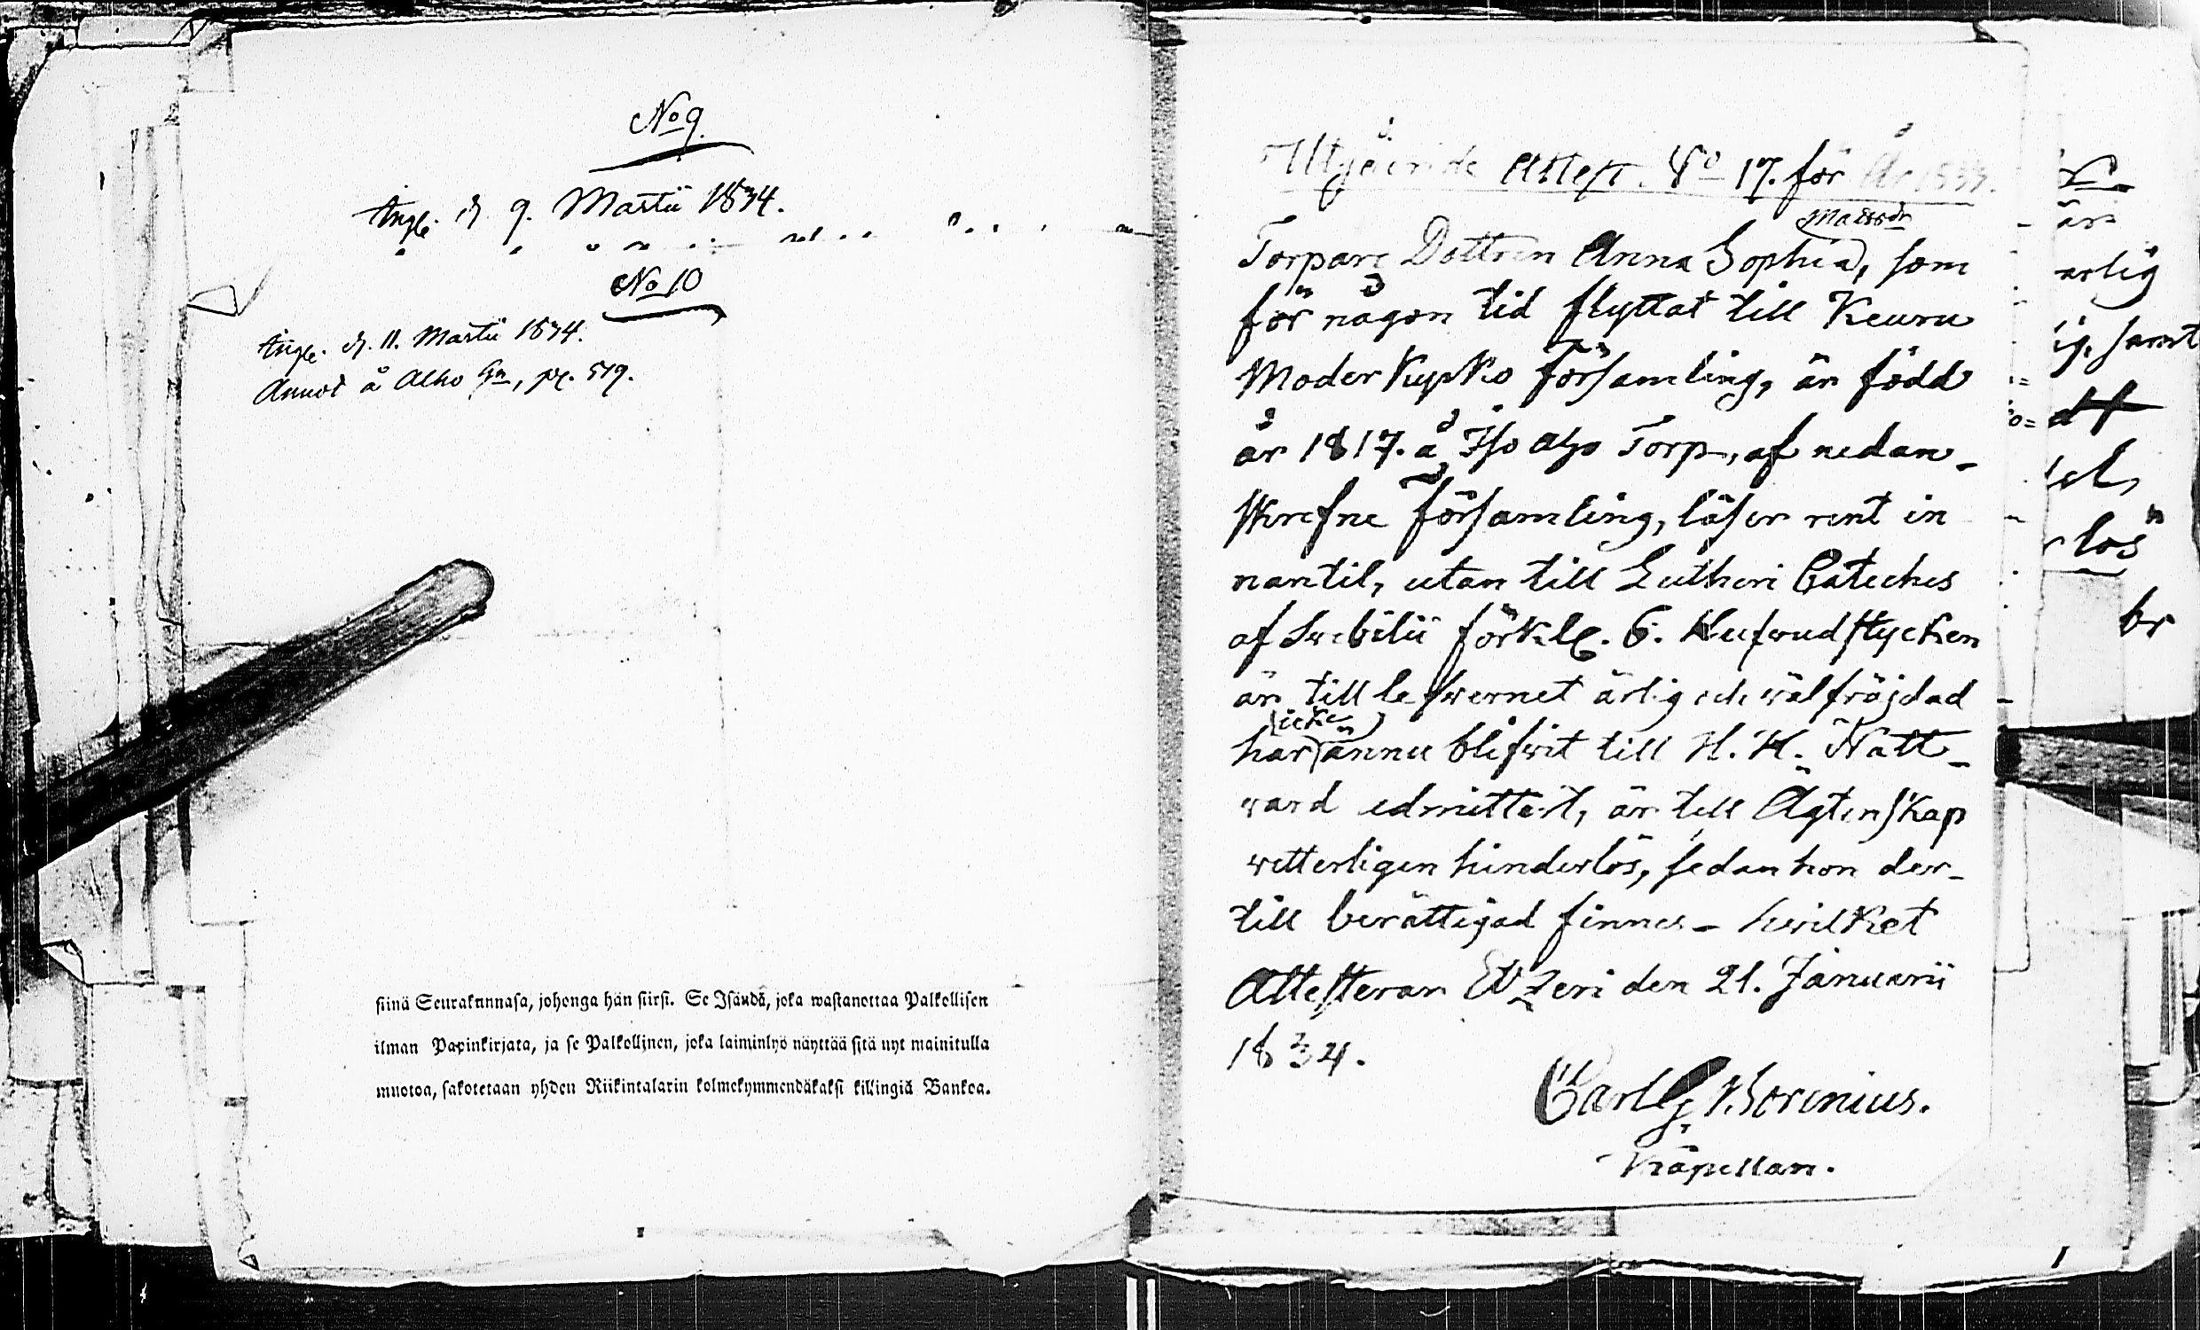 No 9.
Angl. d. 9. Martii 1834.
No 10
Angl. d. 11. Martii 1834.
Annot å Alho Gn, pg. 519.
siinä Seurakunnasa, johonga hän siirsi. Se Isändä, joka wastanottaa Palkollisen
ilman Papinkirjata, ja se Palkollinen, joka laiminlyö näyttää sitä nyt mainitulla
muotoa, sakotetaan yhden Riikintalarin kolmekymmendäkaksi killingiä Bankoa.
Utgående Attest. No 17. för År 1834.
Torpare Dottren Anna Sophia Matsdr, som
för någon tid flyttat till Keuru
Moderkyrko Församling, är född
år 1817. å Iso Aho Torp, af nedan-
skrefne församling, läser rent in
nantil, utan till Lutheri Cateches
af Swebilii förkl. 6. Hufwudstycken
är till lefwernet ärlig och wälfräjdad
har icke ännu blifwit till H. H. Natt-
ward admitterd, är till Ägtenskap
wetterligen hinderlös, sedan hon der-
till berättigad finnes - hwilket
Attesterar Etzeri den 21. Januarii
1834.
Carl G. Borenius.
Kapellan.
är
arlig
samt
lös
br